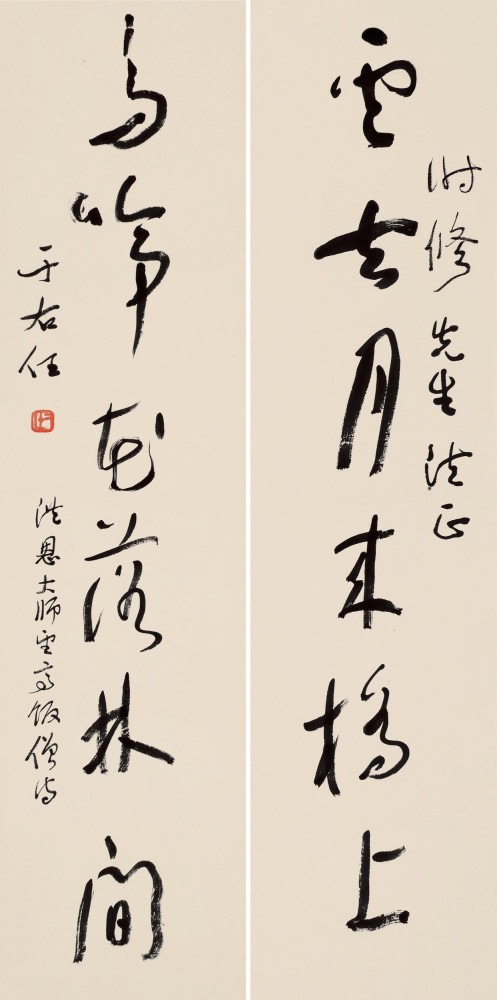 雲去月來橋上
時修先生法正
鳥啼花落林間
于右任
洪恩大師望亭飯僧詩